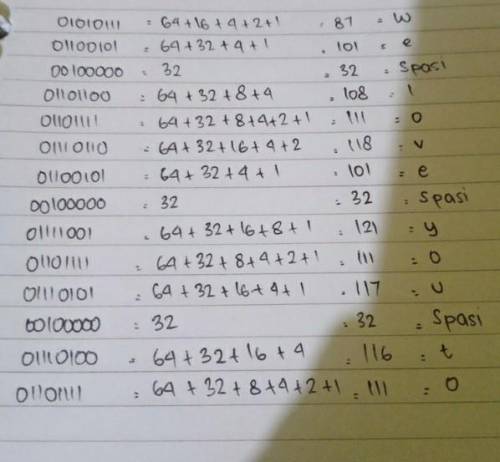 01010111 = 64+16+4+2+1 = 87 = W
01100101 = 64+32+4+1 = 101 = e
00100000 = 32 = 32 = Spasi
01101100 = 64+32+8+4 = 108 = l
01101111 = 64+32+8+4+2+1 = 111 = o
01110110 = 64+32+16+4+2 = 118 = v
01100101 = 64+32+4+1 = 101 = e
00100000 = 32 = 32 = Spasi
01111001 = 64+32+16+8+1 = 121 = y
01101111 = 64+32+8+4+2+1 = 111 = o
01110101 = 64+32+16+4+1 = 117 = u
00100000 = 32 = 32 = Spasi
01110100 = 64+32+16+4 = 116 = t
01101111 = 64+32+8+4+2+1 = 111 = o